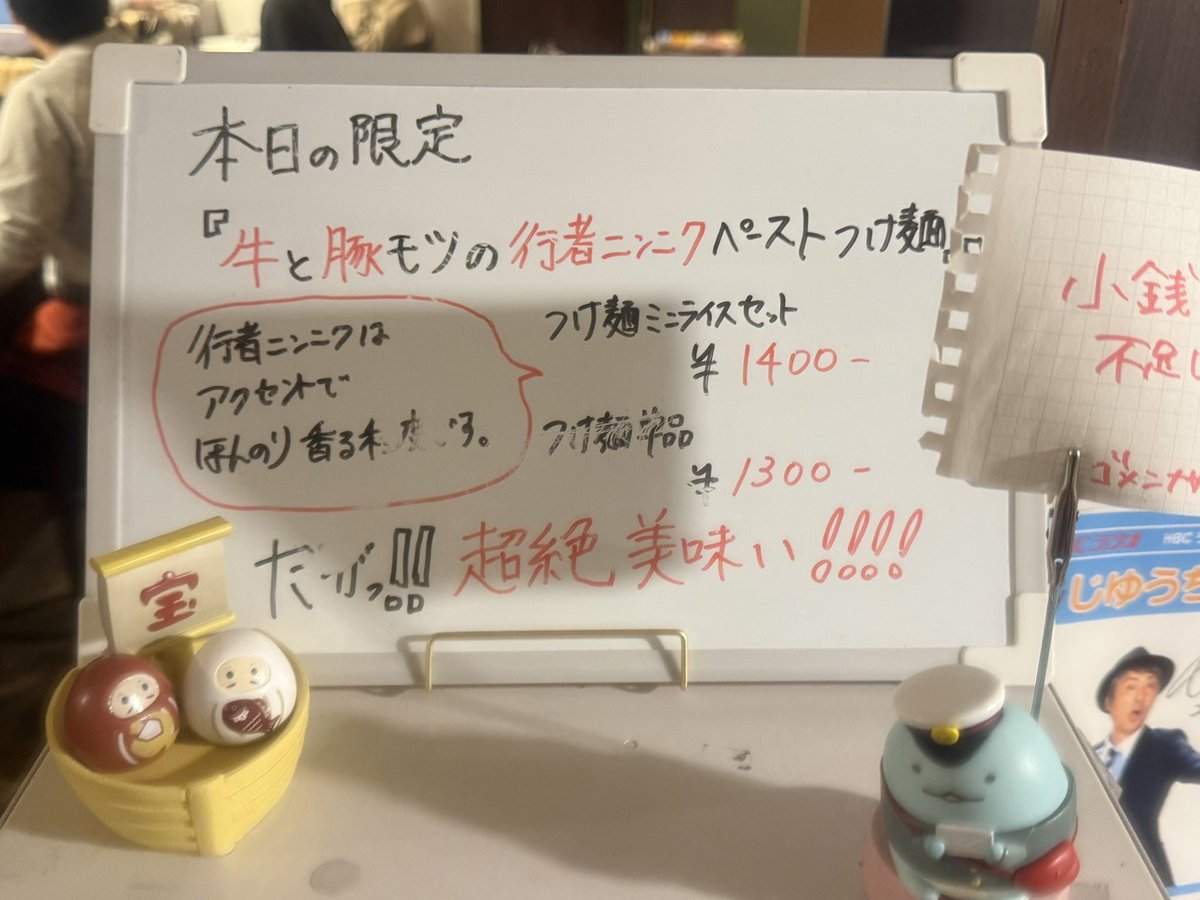 本日の限定
『牛と豚モツの行者ニンニクペーストつけ麺』
行者ニンニクは
アクセントで
ほんのり香る程度です。
つけ麺ミニライスセット
¥1400-
つけ麺単品
¥1300-
超絶美味い!!!!
小銭
不足し
ゴメンナサ
宝
HBC
じゆうち